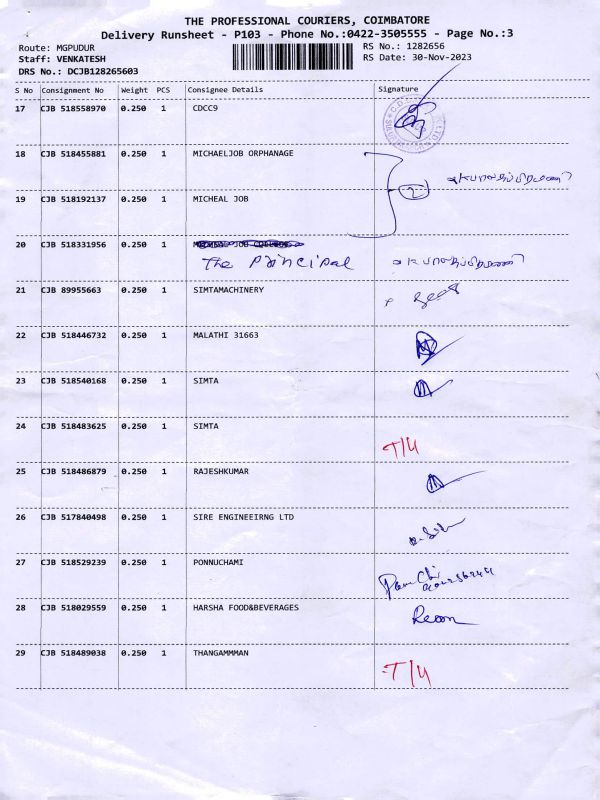 THE PROFESSIONAL COURIERS, COIMBATORE
Delivery Runsheet - P103 - Phone No.:0422-3505555 - Page No.:3
Route: MGPUDUR RS No.: 1282656
Staff: VENKATESH RS Date: 30-Nov-2023
DRS No.: DCJB128265603
S No Consignment No Weight PCS Consignee Details Signature
17 CJB 518558970 0.250 1 CDCC9
18 CJB 518455881 0.250 1 MICHAELJOB ORPHANAGE
2
19 CJB 518192137 0.250 1 MICHEAL JOB
20 CJB 518331956 0.250 1
The principal
21 CJB 89955663 0.250 1 SIMTAMACHINERY
22 CJB 518446732 0.250 1 MALATHI 31663
23 CJB 518540168 0.250 1 SIMTA
24 CJB 518483625 0.250 1 SIMTA
T/4
25 CJB 518486879 0.250 1 RAJESHKUMAR
26 CJB 517840498 0.250 1 SIRE ENGINEEIRNG LTD
27 CJB 518529239 0.250 1 PONNUCHAMI
28 CJB 518029559 0.250 1 HARSHA FOOD&BEVERAGES
29 CJB 518489038 0.250 1 THANGAMMMAN
T/4